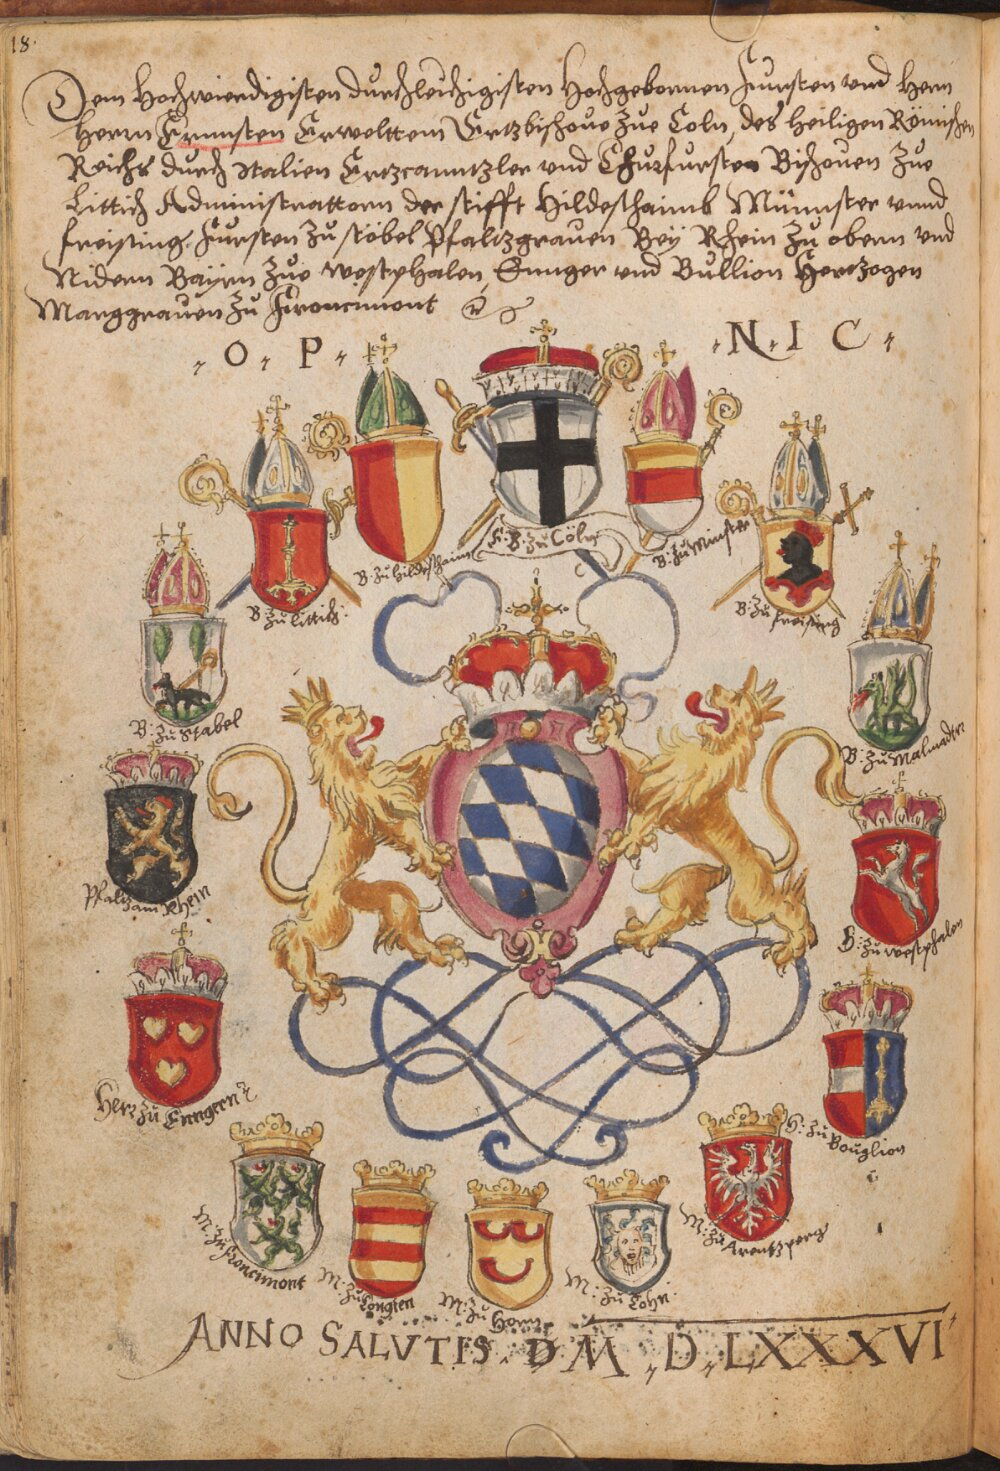 18.
Dem Hochwierdigisten durchleuchigisten Hochgebornnen Fursten vnd Herrn
Herrn Ernnsten Erwelttem Ertzbischoue Zue Coln, des Heiligen Römischen
Reichs durch Italien Ertzcanntzler vnd Churfursten Bischouen Zue
Littich Administrattorn der stifft Hildeshaimb Münnster vnnd
freising. Fursten Zu stobel Pfaltzgrauen Bey Rhein Zu obern vnd
Nidern Bayrn Zue westphalen, Ennger vnd Bullion Hertzogen
Marggrauen Zu Francimont
. O . P . . N . I C .
E. B. Zu Cöln
B. Zu Hildeshaim
B. Zu Minster
B. Zu Littich.
B. Zu freising
B: Zu Stabel
B: Zu Malmedten
Pfaltz am Rhein
H: Zu westphalen
Hertz Zu Enngern
H: Zu Bouglion
M: Zu francimont
M: Zu Longien
M: Zu Horn
M: Zu Lohn.
M: Zu Arentzperg
ANNO SALVTIS. D M . D . LXXXVI